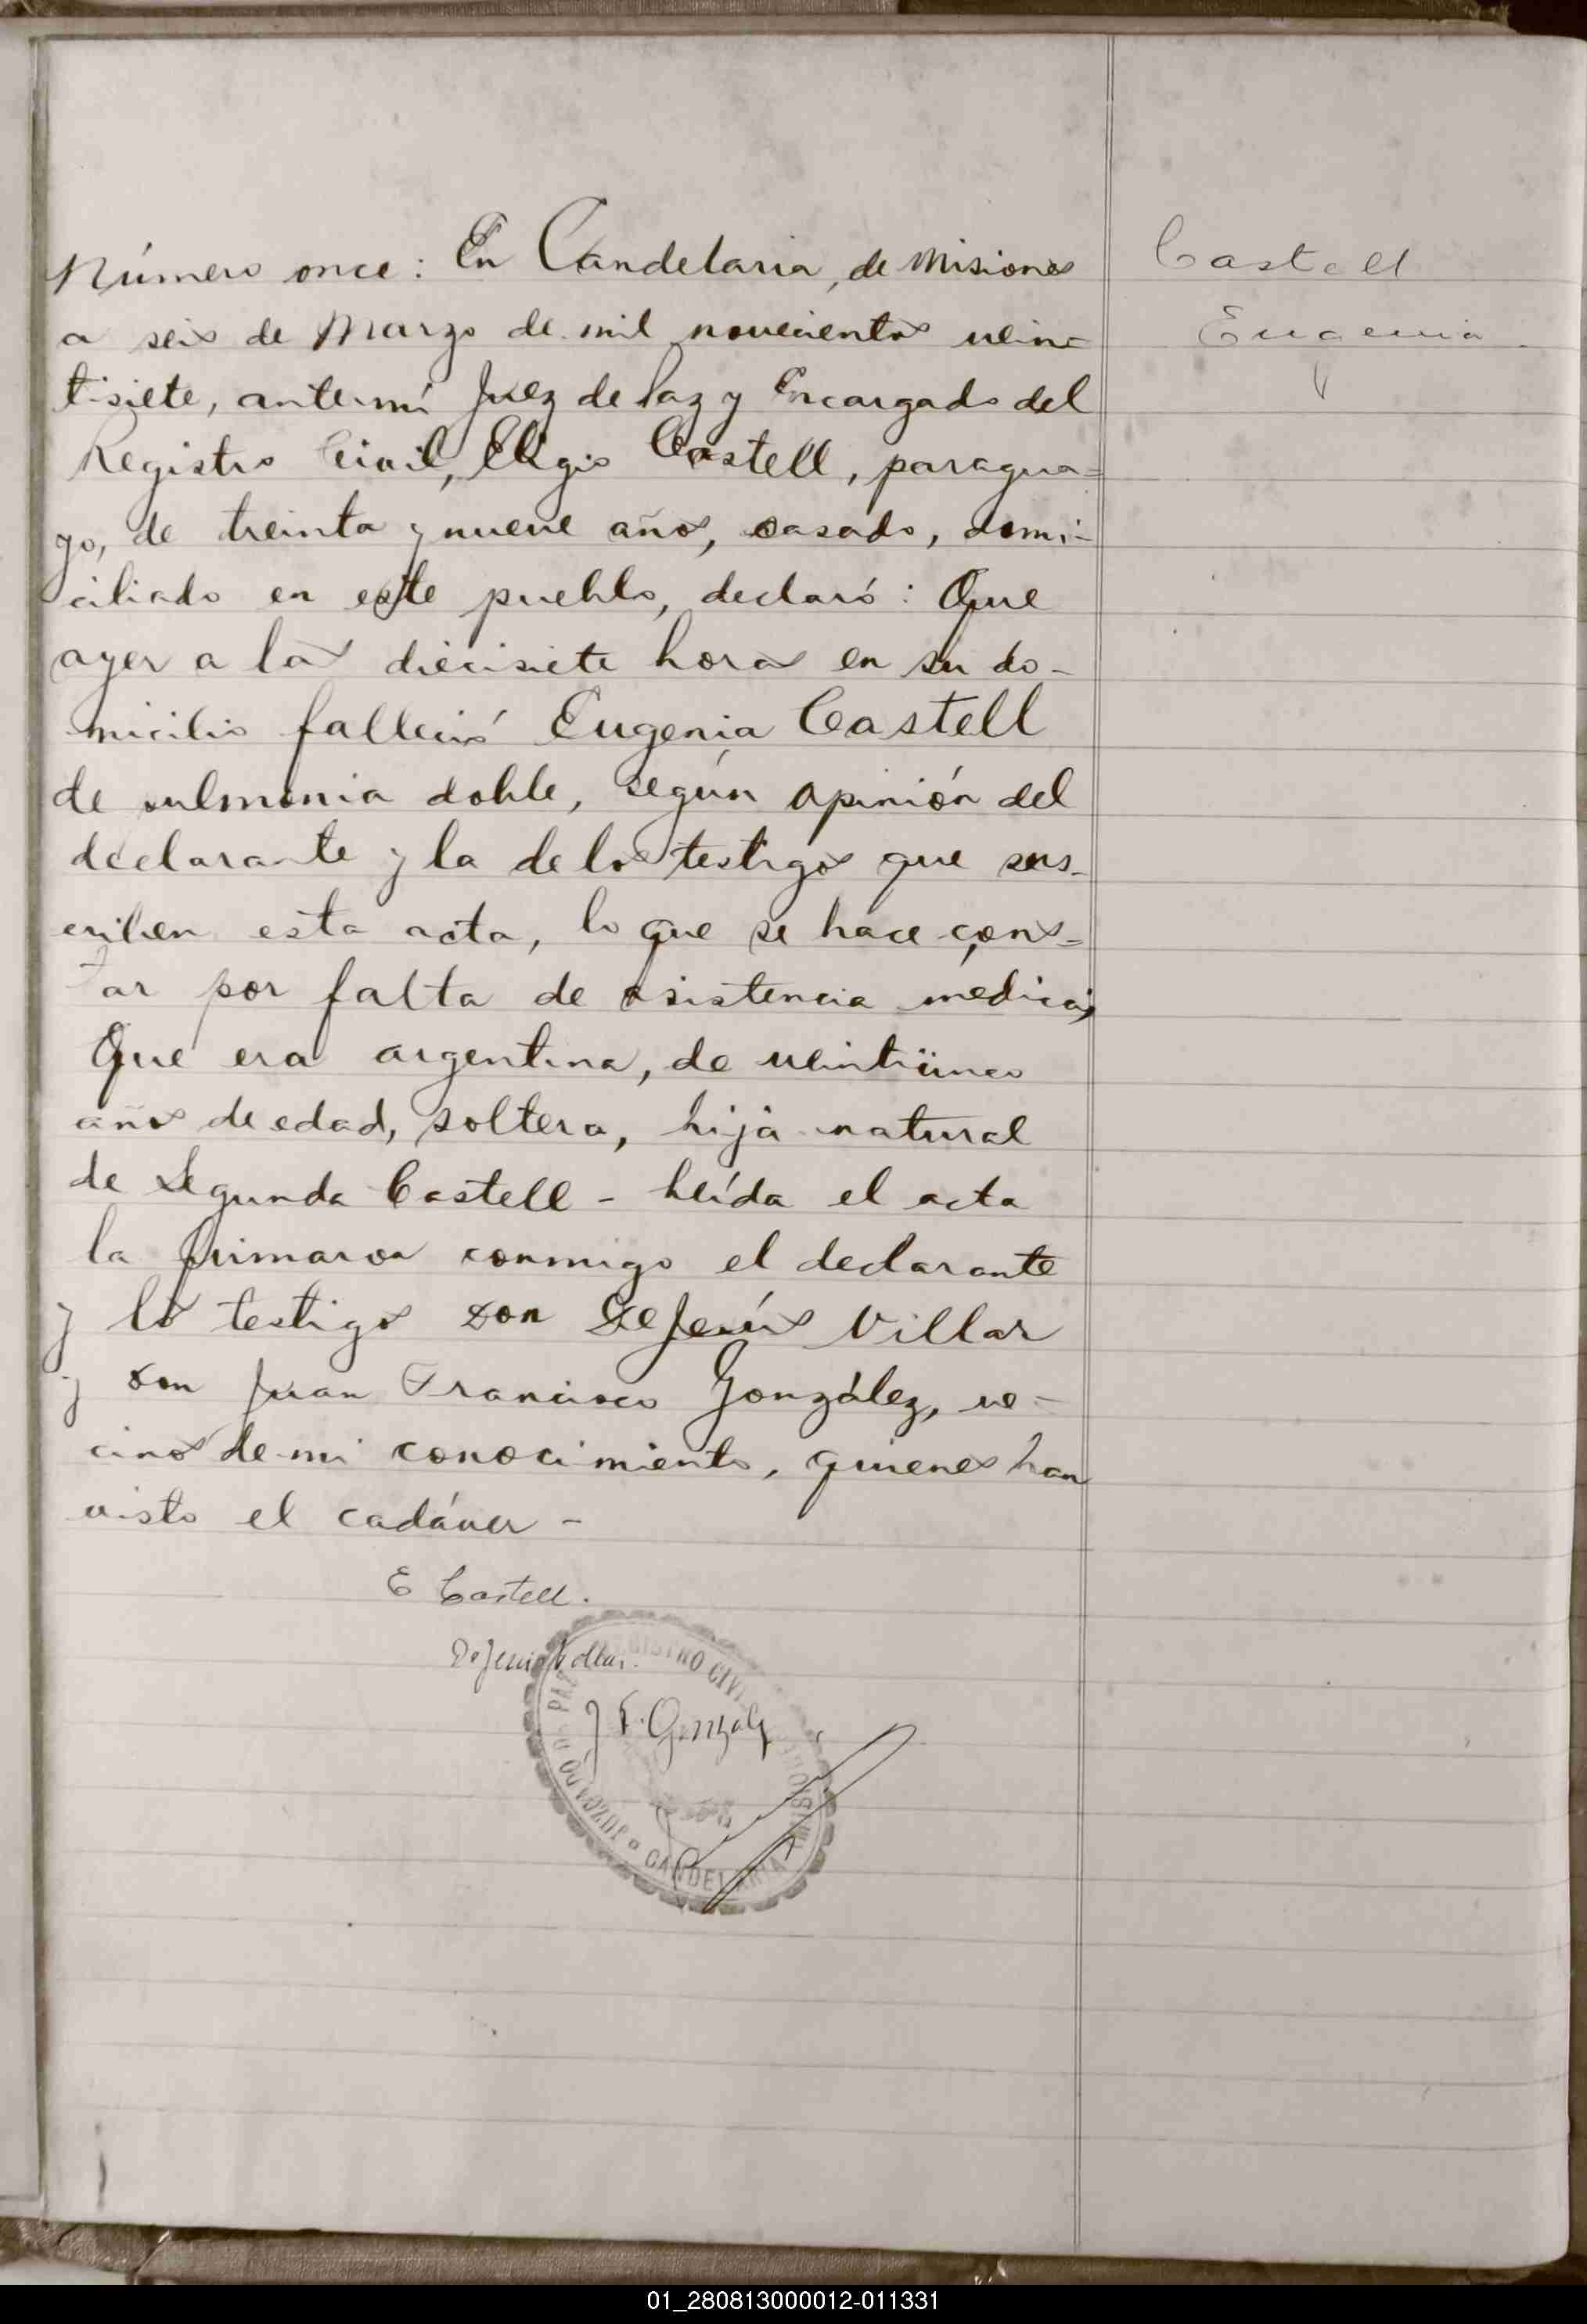 Número once: En Candelaria, de Misiones
Castell
a seis de Marzo de mil novecientos vein=
Eugenia
tisiete, ante mí Juez de Paz y Encargado del
Registro Civil, Eligio Castell, paragua=
yo, de treinta y nueve años, casado, domi-
ciliado en este pueblo, declaró: Que
ayer a las diecisiete horas en su do-
micilio falleció Eugenia Castell
de pulmonia doble, según opinión del
declarante y la de los testigos que sus-
criben esta acta, lo que se hace cons=
tar por falta de asistencia médica,
Que era argentina, de veinticinco
años de edad, soltera, hija natural
de Segunda Castell - Leída el acta
la firmaron conmigo el declarante
y los testigos don DeJesús Villar
y don Juan Francisco González, ve-
cinos de mi conocimiento, quienes han
visto el cadáver -
E Castell.
DeJesus Villar.
J F. Gonzalez
JUZGADO DE PAZ REGISTRO CIVIL
CANDELARIA MISIONES
01_280813000012-011331